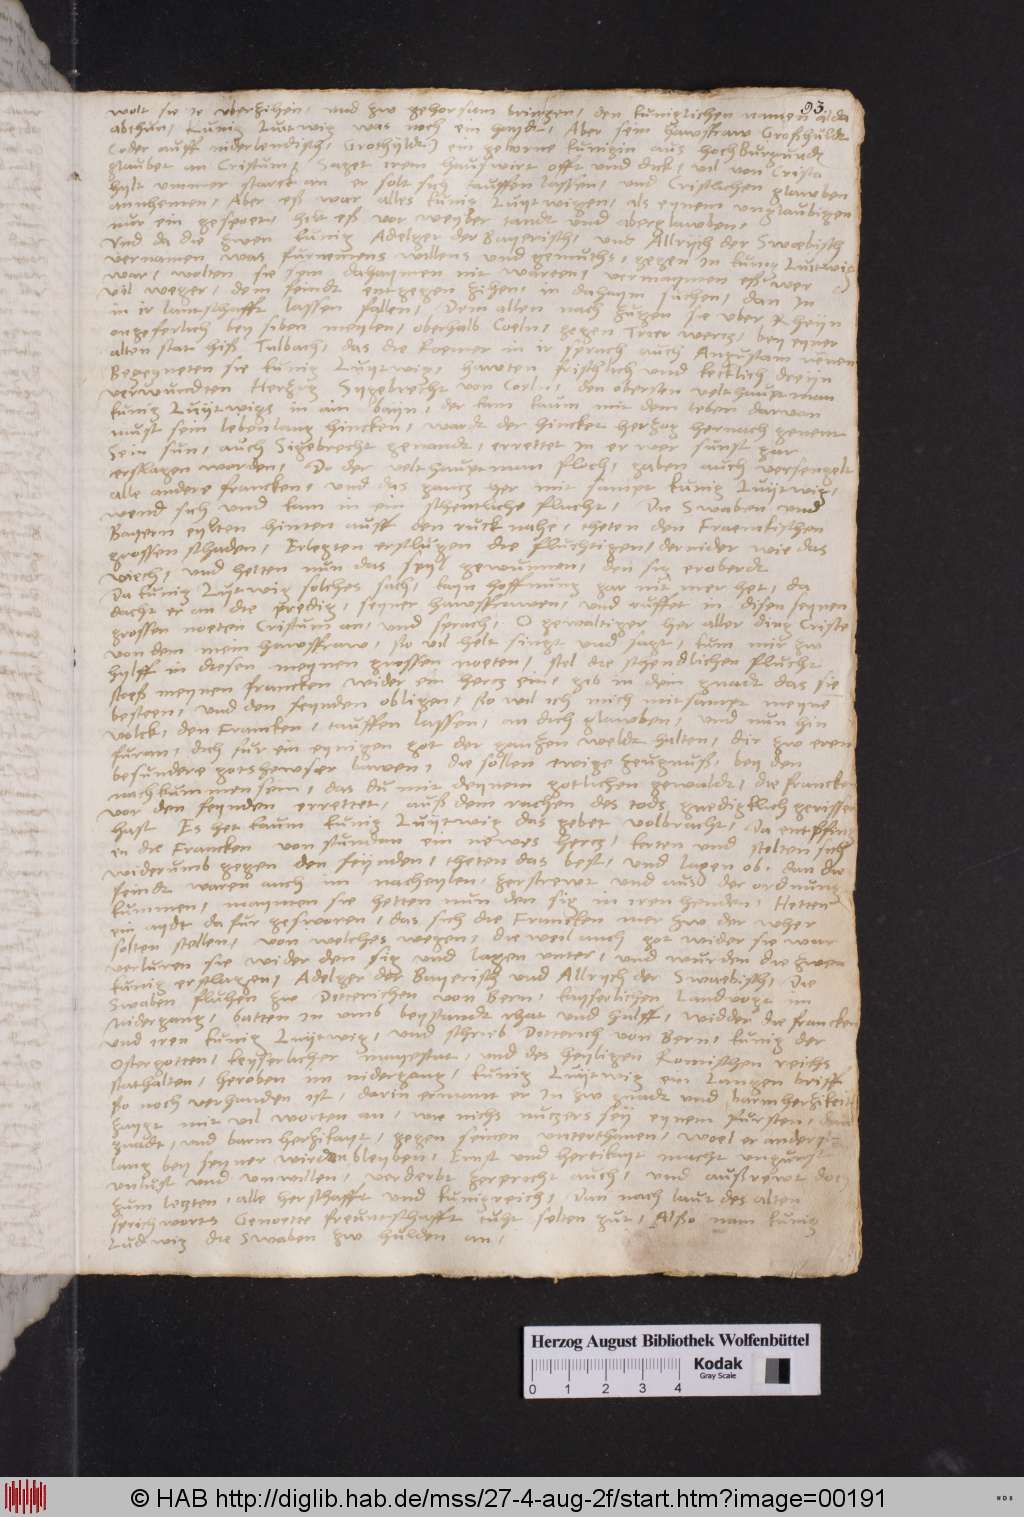 93
wolt sie je uberzihen, und zw gehorsam bringen, den kuniglichen namen alda
abthun, Kunig Luytwig was noch ein haydt, Aber sein hawsfraw Großhuldt
(oder auff niderlendisch, Grothyldt) ein geborne kunigin aus hochBurgundt
glaubet an Cristum, Saget irem hauswirt offt und dick, vil von Cristo
hylt ummer starck an er solt sich tauffen lassen, und Cristlichen glawben
annhemen, Aber eß war alles kunig Luytwigen, als eynem unglaubigen
nur ein gespoet, hilt eß vor weyber tandt und aberglawben,
Und da die zwen kunig Adelger der Bayerisch, und Allrych der Swaebisch
vernamen was furnemens willens und gemuths, gegen in kunig Luytwig
war, wolten sie sein dahaymen nit warten, vermaynten eß wer
vil weger, dem feindt entgegen zihen, in dahaym suchen, dan in
in ir lantschafft lassen fallen, Dem allen nach zugen sie uber Rheyn
ongeferlich bey siben meylen, oberhalb Coeln, gegen Trier wercz, bey eyner
alten stat hiß Tulbach, das die Roemer in ir sprach auch Augustam nenen
Begegneten sie kunig Luytwig, hawten frischlich und kecklich dreyn
verwundten Herzog Sygebrecht von Coeln, den obersten velthauptman
kunig Luytwigs in ain bayn, der kam kaum mit dem leben darvon
must sein lebenlang hincken, wardt der hincket herzog hernach genent
Sein sun, auch Sigebrecht genandt, errettet in er wer sunst gar
erslagen worden, Do der velthauptman floch, gaben auch versengelt
alle andere francken, und das gancz her mit sampt kunig Luytwig,
wend sich und kam in ein schentliche flucht, Die Swaben und
Bayern eylten hinten auff den ruck nahe, theten den Fraenckischen
grossen schaden, Erlegten erslugen die fluchtigen, dernider wie das
viech, und hetten nun das spyl gewunnen, den sig eroberdt
Da kunig Luytwig solches sach, kayn hoffnung gar nit mer het, da
dacht er an die predig, seyner hawsfrawen, und ruffet in disen seynen
grossen noeten Cristum an, und sprach, O gewaltiger her aller ding Criste
von dem mein hawsfraw, so vil helt singt und sagt, kum mir zw
hylff in diesen meynen grossen noeten, stel die schendlichen flucht
stoeß meynen francken wider ein hercz eine gib in dein gnadt das sie
besteen, und den feynden obligen, so wil ich mich mitsampt meynem
volck, den Francken, tauffen lassen, an dich glawben, und nun hin
furan, dich fur ein eynigen got der ganzen weldt halten, dir zw eren
besundere gotshewser bawen, die sollen ewige zeugnuß, bey den
nachkummen sein, das du mit deynem gotlichen gewaldt, die francken
vor den feynden errettet, auß dem rachen des tods gnedigklich gerissen
hast Es het kaum kunig Luytwig das gebet volbracht, Da entpfing
en die Francken von stundan ein newes hercz, kerten und stelten sich
widerumb gegen den feynden, theten das best, und lagen ob, dan die
feindt waren auch im nacheylen, zerstrewt und auß der ordnung
kummen, maynten sie hetten nun den sig in iren henden, Hetten
ein aydt da fur gesworen, das sich die Francken mer zw der wher
solten stellen, von welches wegen, die weil auch got wider sie war
verluren sie wider den sig und lagen unter, und wurden die zwen
kunig erslagen, Adelger der Bayerisch und Allrych der Swaebisch, Die
Swaben fluhen zw Dieterichen von Bern, kayserlichen Landvogt im
nidergang, batten in umb beystandt rhat und hulff, widder die francken
und iren kunig Luytwig, und schrib Dieterich von Bern, kunig der
Ostergotten, keyserlicher mayestat, und des heyligen Romischen reichs
stathalten, heroben im nidergang, kunig Luytwig ein langen briff
so noch verhanden ist, darin ermant er in zw gnadt und barmherzikeit
zaygt mit vil worten an, wie nichs nuczers sey eynem fursten, dan
gnadt, und barmherzikayt, gegen seinen underthanen, woel er anderst
lang bey seyner wirden bleyben, Ernst und hertikayt macht ungunst
unlust und unwillen, verderbt zerpricht auch, und außrewt doch
zum letzten, alle herschafft und kunigreich, Dan nach laut des alten
sprichworts Genoette freuntschafft tuht selten gut, Also nam kunig
Ludwig die Swaben zw hulden an,
Herzog August Bibliothek Wolfenbüttel
Kodak
Gray Scale
0 1 2 3 4
© HAB http://diglib.hab.de/mss/27-4-aug-2f/start.htm?image=00191